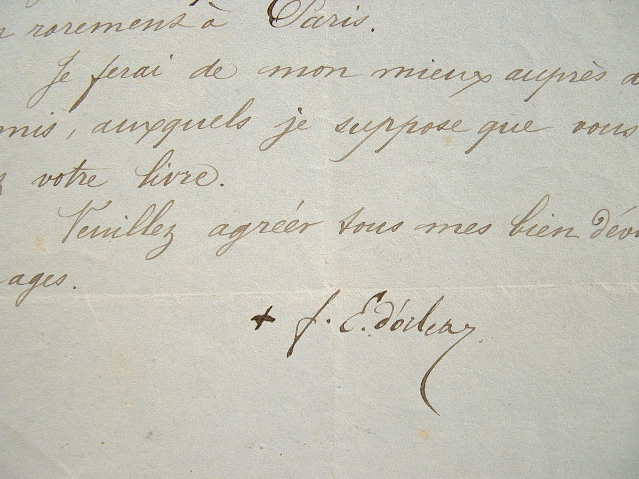 rarement à Paris.
Je ferai de mon mieux auprès d
mis, auxquels je suppose que vous
z votre livre.
Veuillez agréer tous mes bien dévo
ages.
+ f. E. d'orléans